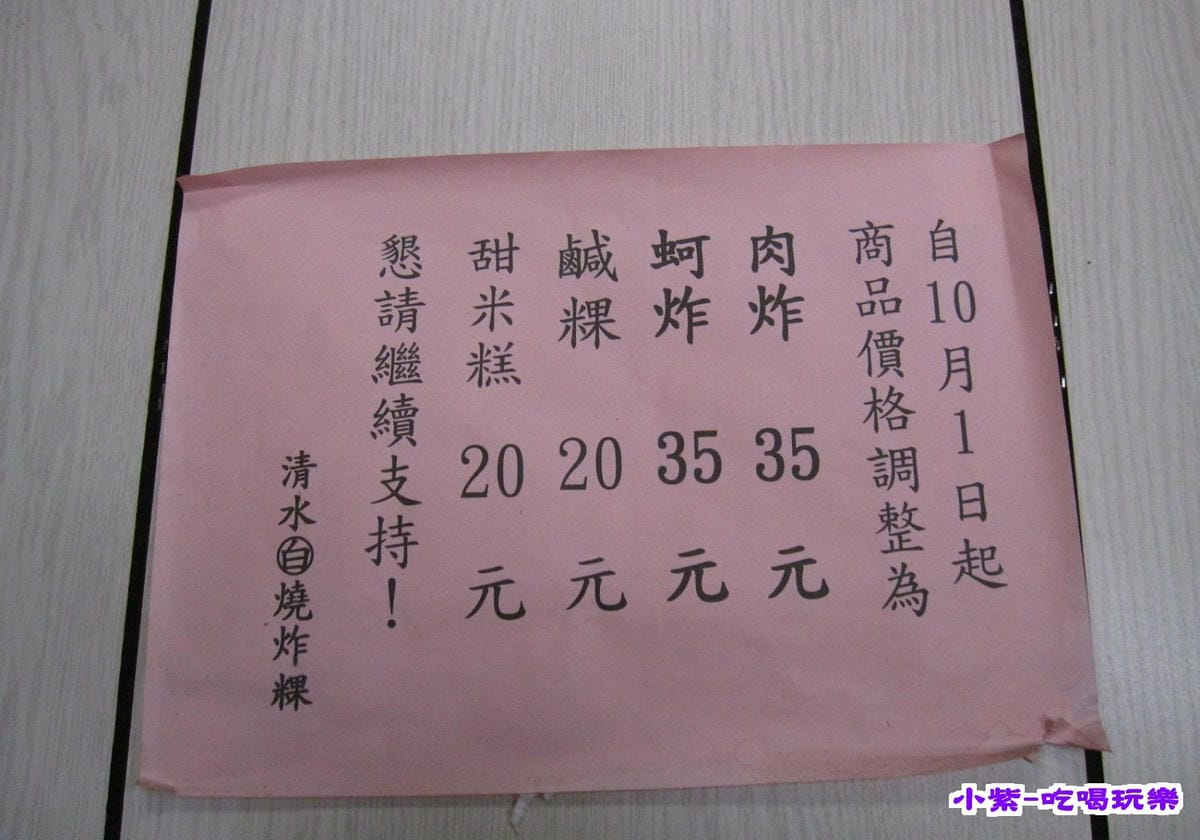 自10月1日起
商品價格調整為
肉炸 35元
蚵炸 35元
鹹粿 20元
甜米糕 20元
懇請繼續支持！
清水㊀燒炸粿
小紫-吃喝玩樂